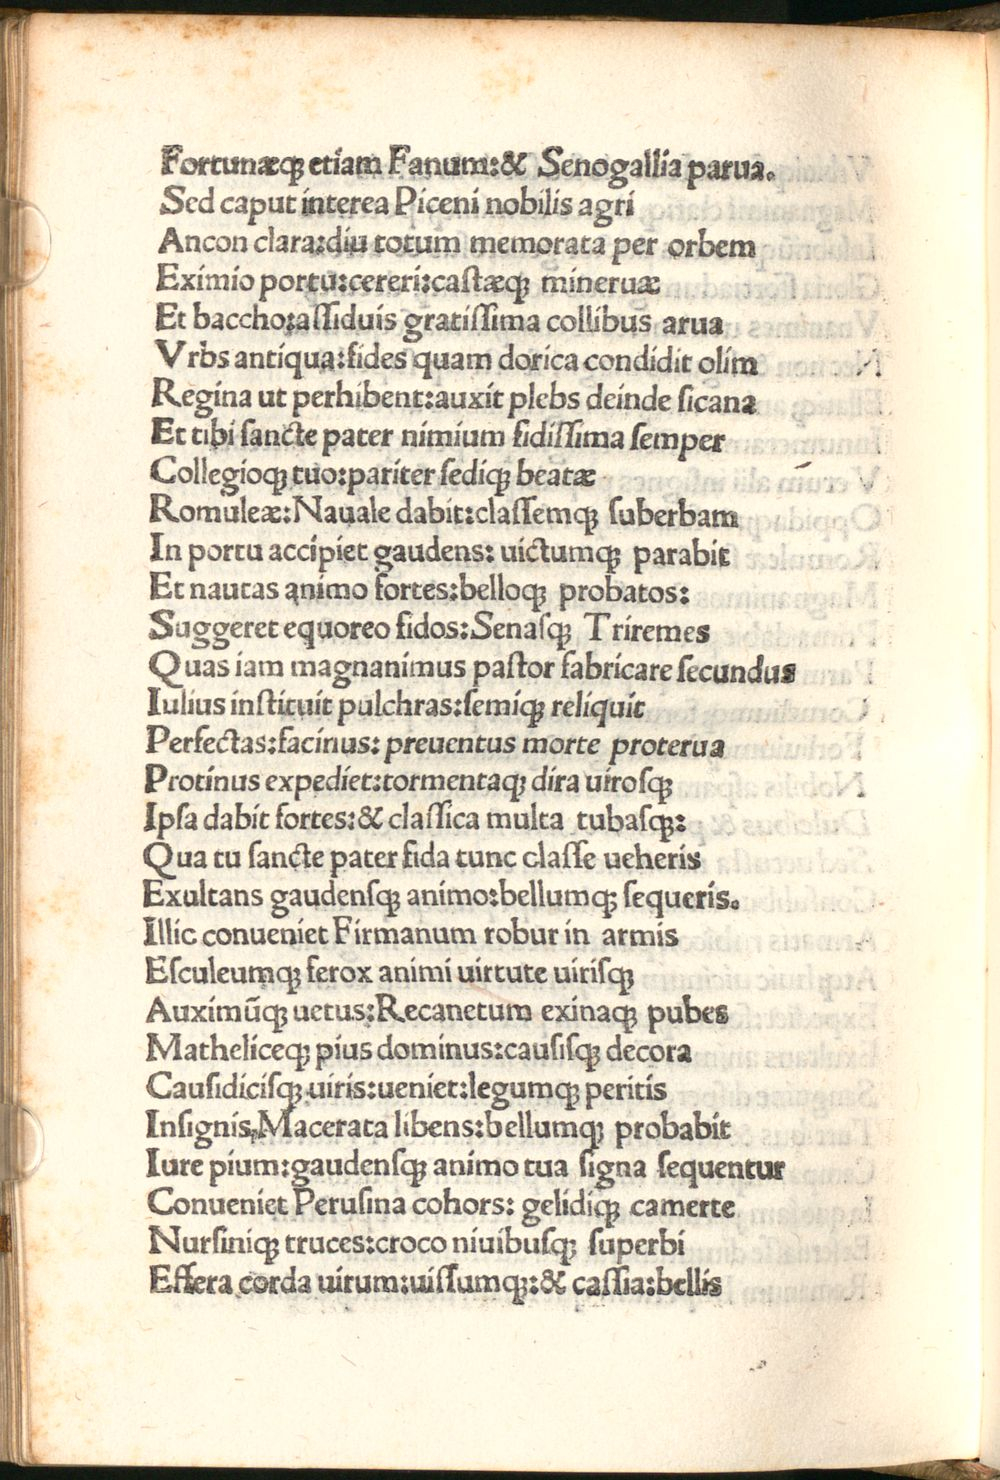 Fortunæq; etiam Fanum:& Senogallia parua.
Sed caput interea Piceni nobilis agri
Ancon clara:diu totum memorata per orbem
Eximio portu:cereri:castæq; mineruæ
Et baccho:assiduis gratissima collibus arua
Vrbs antiqua:fides quam dorica condidit olim
Regina ut perhibent:auxit plebs deinde sicana
Et tibi sancte pater nimium fidissima semper
Collegioq; tuo:pariter sediq; beatæ
Romuleæ:Nauale dabit:classemq; suberbam
In portu accipiet gaudens: uictumq; parabit
Et nautas animo fortes:belloq; probatos:
Suggeret equoreo fidos:Senasq; Triremes
Quas iam magnanimus pastor fabricare secundus
Iulius instituit pulchras:semiq; reliquit
Perfectas:facinus: preuentus morte proterua
Protinus expediet:tormentaq; dira uirosq;
Ipsa dabit fortes:& classica multa tubasq;:
Qua tu sancte pater fida tunc classe ueheris
Exultans gaudensq; animo:bellumq; sequeris.
Illic conueniet Firmanum robur in armis
Esculeumq; ferox animi uirtute uirisq;
Auximũq; uetus:Recanetum exinaq; pubes
Matheliceq; pius dominus:causisq; decora
Causidicisq; uiris:ueniet:legumq; peritis
Insignis,Macerata libens:bellumq; probabit
Iure pium:gaudensq; animo tua signa sequentur
Conueniet Perusina cohors: gelidiq; camerte
Nursiniq; truces:croco niuibusq; superbi
Effera corda uirum:uissumq;:& cassia:bellis